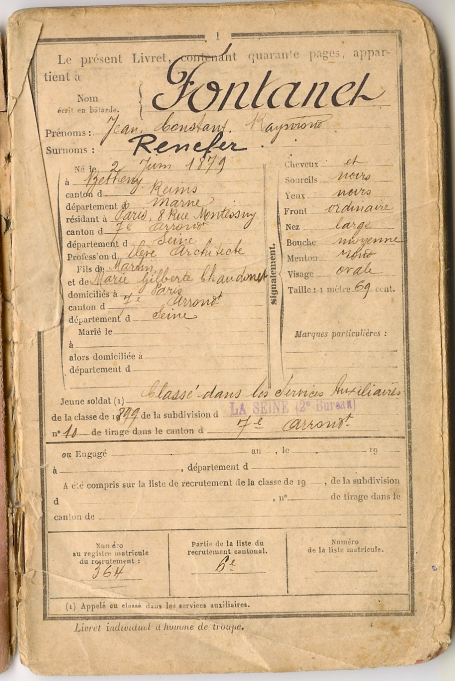 1
Le présent Livret, contenant quarante pages, appar-
tient à
Nom
écrit en bâtarde.
Fontanet
Prénoms : Jean Constant Raymond
Surnoms : Renefer
Né le 2 Juin 1879
à Betheny
canton d Reims
département d Marne
résidant à Paris, 8 Rue Montessuy
canton d 7e Arrondt
département d Seine
Profession d élève Architecte
Fils de Martin
et de Marie Gilberte Chaudonet
domiciliés à Paris
canton d 7e Arrondt
département d Seine
Marié le
à
alors domiciliée à
département d
Signalement.
Cheveux et
Sourcils noirs
Yeux noirs
Front ordinaire
Nez large
Bouche moyenne
Menton rond
Visage ovale
Taille : 1 mètre 69 cent.
Marques particulières :
Jeune soldat (1) Classé dans les Services Auxiliaires
de la classe de 1899 de la subdivision d LA SEINE (2e Bureau)
n° 10 de tirage dans le canton d 7e Arrondt.
ou Engagé au , le 19
à , département d
A été compris sur la liste de recrutement de la classe de 19 , de la subdivision
d , n° de tirage dans le
canton de
Numéro
au registre matricule
du recrutement :
364
Partie de la liste du
recrutement cantonal.
6e
Numéro
de la liste matricule.
(1) Appelé ou classé dans les services auxiliaires.
Livret individuel d'homme de troupe.